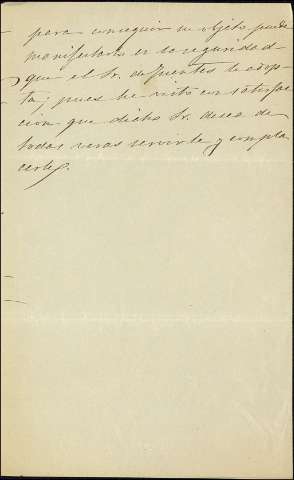 para conseguir su objeto puede
manifestarlo en la seguridad
que el Sr. de Fuentes lo adop-
ta, pues he visto con satisfac-
ción que dicho Sr. desea de
todas veras servirle y compla-
cerle.